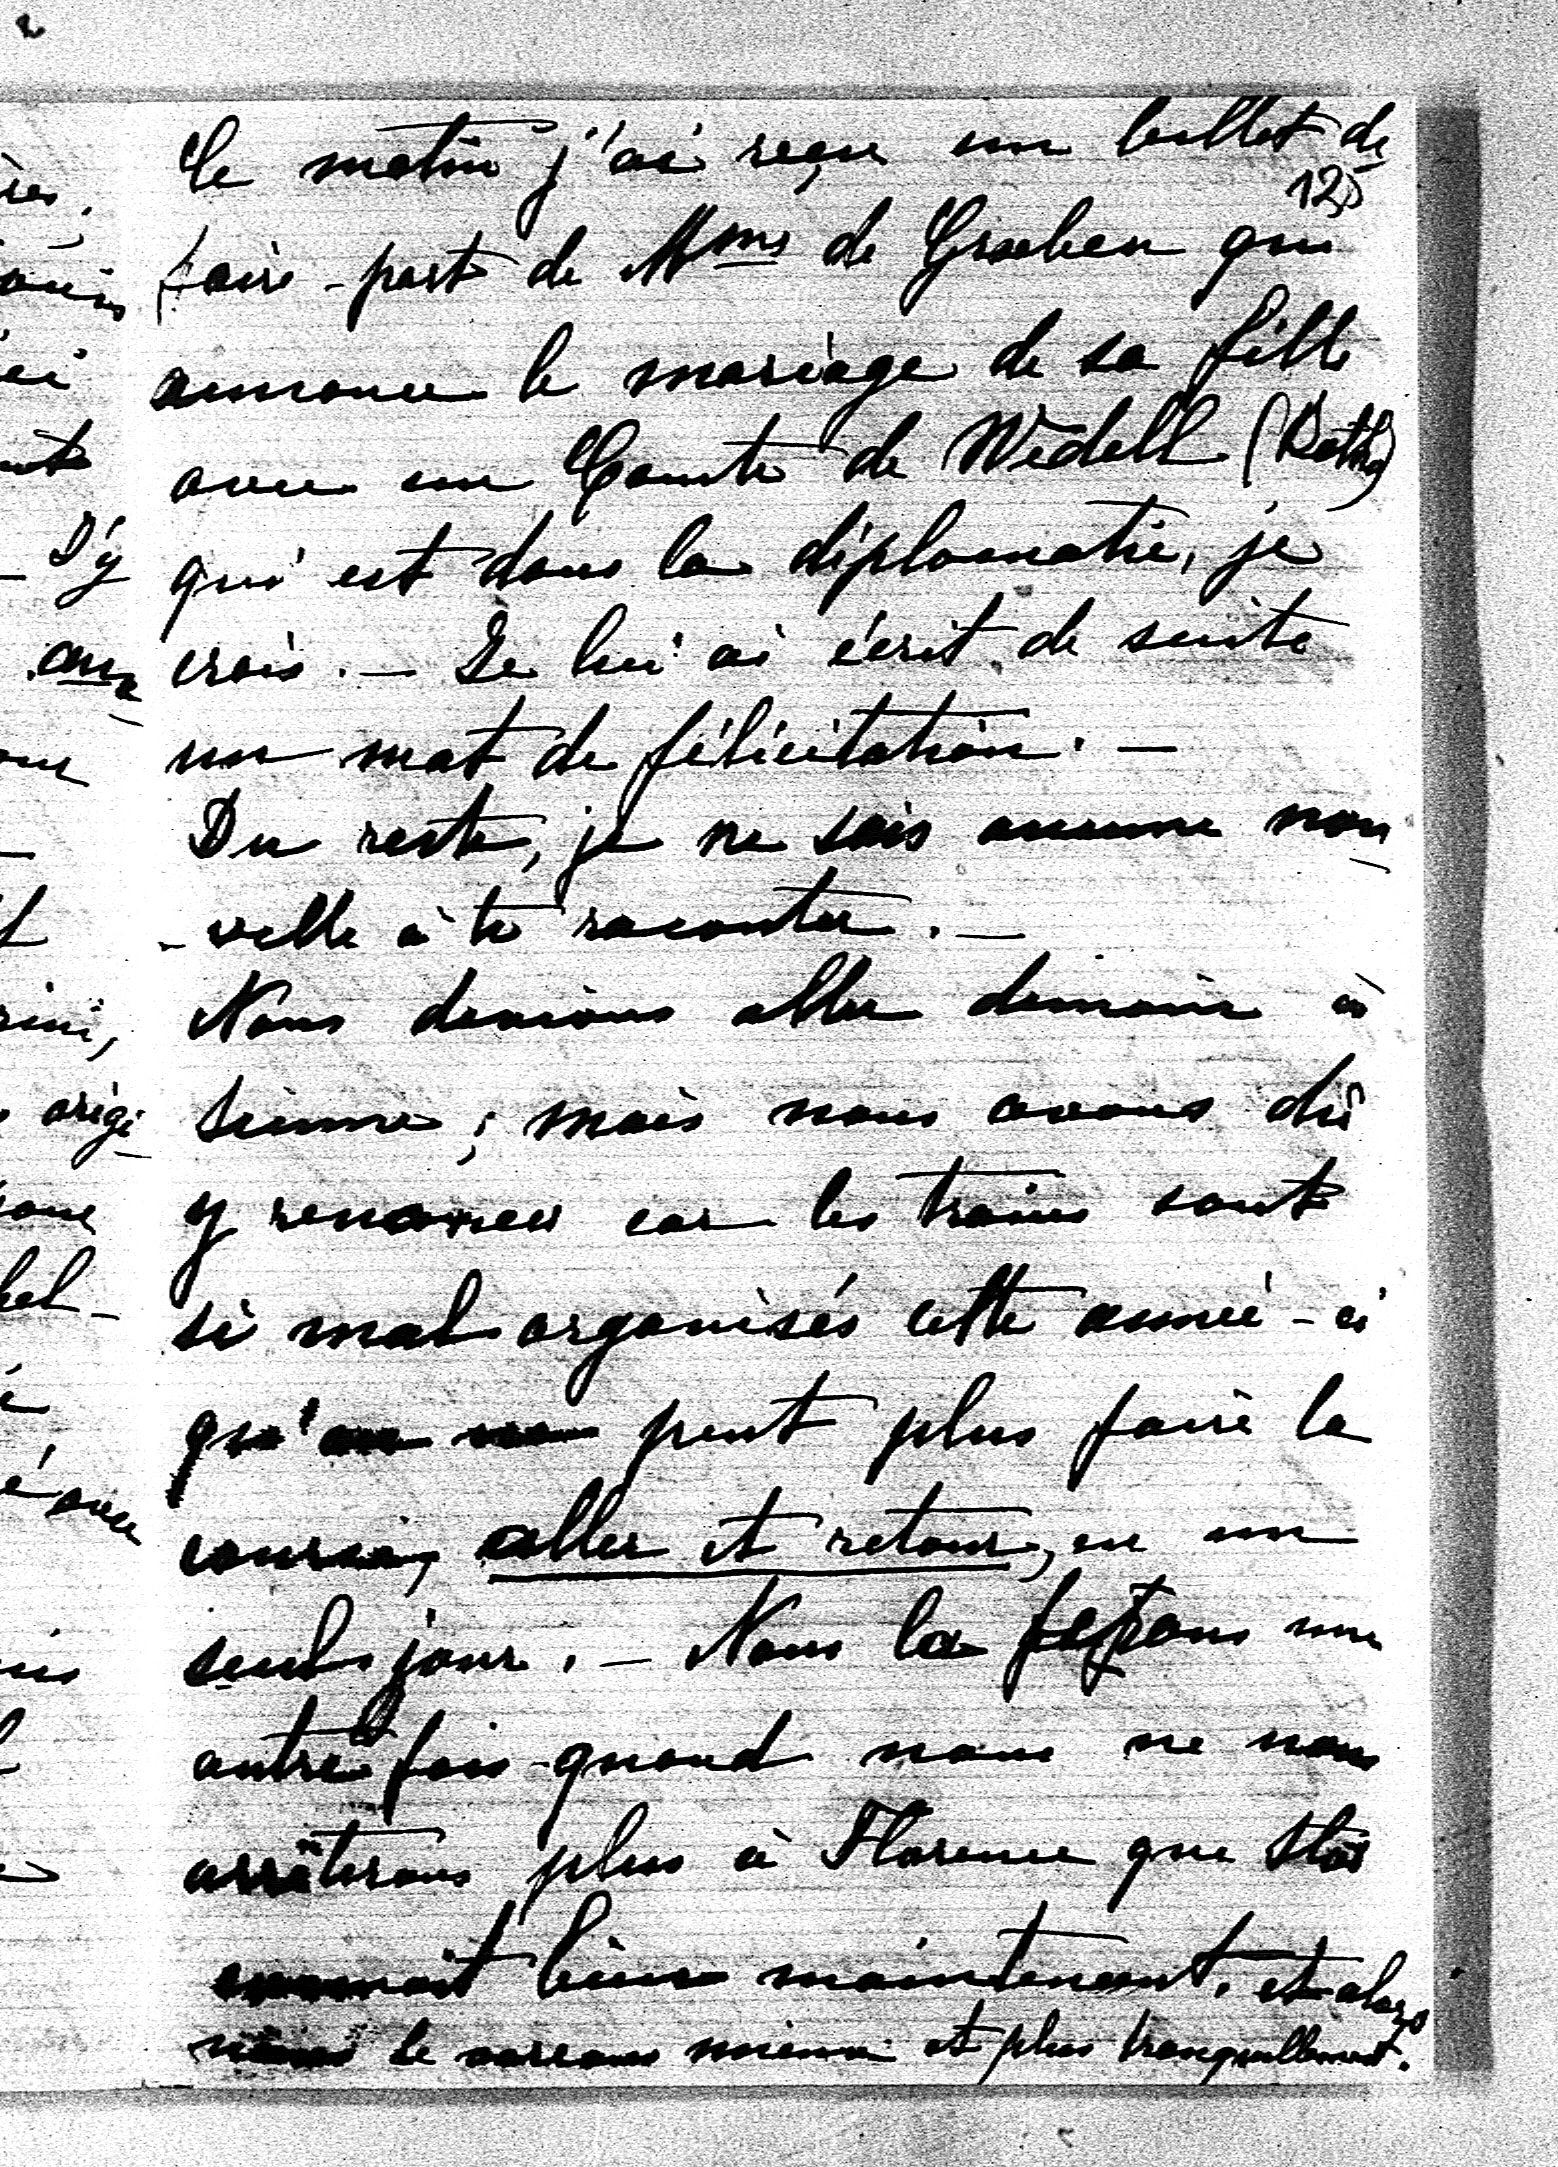 Ce matin j'ai reçu un billet de
125
faire-part de Mme de Groeben qui
annonce le mariage de sa fille
avec un Comte de Wedell (Botho)
qui est dans la diplomatie, je
crois. — Je lui ai écrit de suite
un mot de félicitation. —
Du reste, je ne sais aucune nou
-velle à te raconter. —
Nous devions aller demain à
Sienne; mais nous avons dû
y renoncer car les trains sont
si mal organisés cette année-ci
qu'on ne peut plus faire la
course, aller et retour, en un
seul jour. — Nous la ferons une
autre fois quand nous ne nous
arrêterons plus à Florence que
connait bien maintenant, et alors
nous le verrons mieux et plus tranquillement.